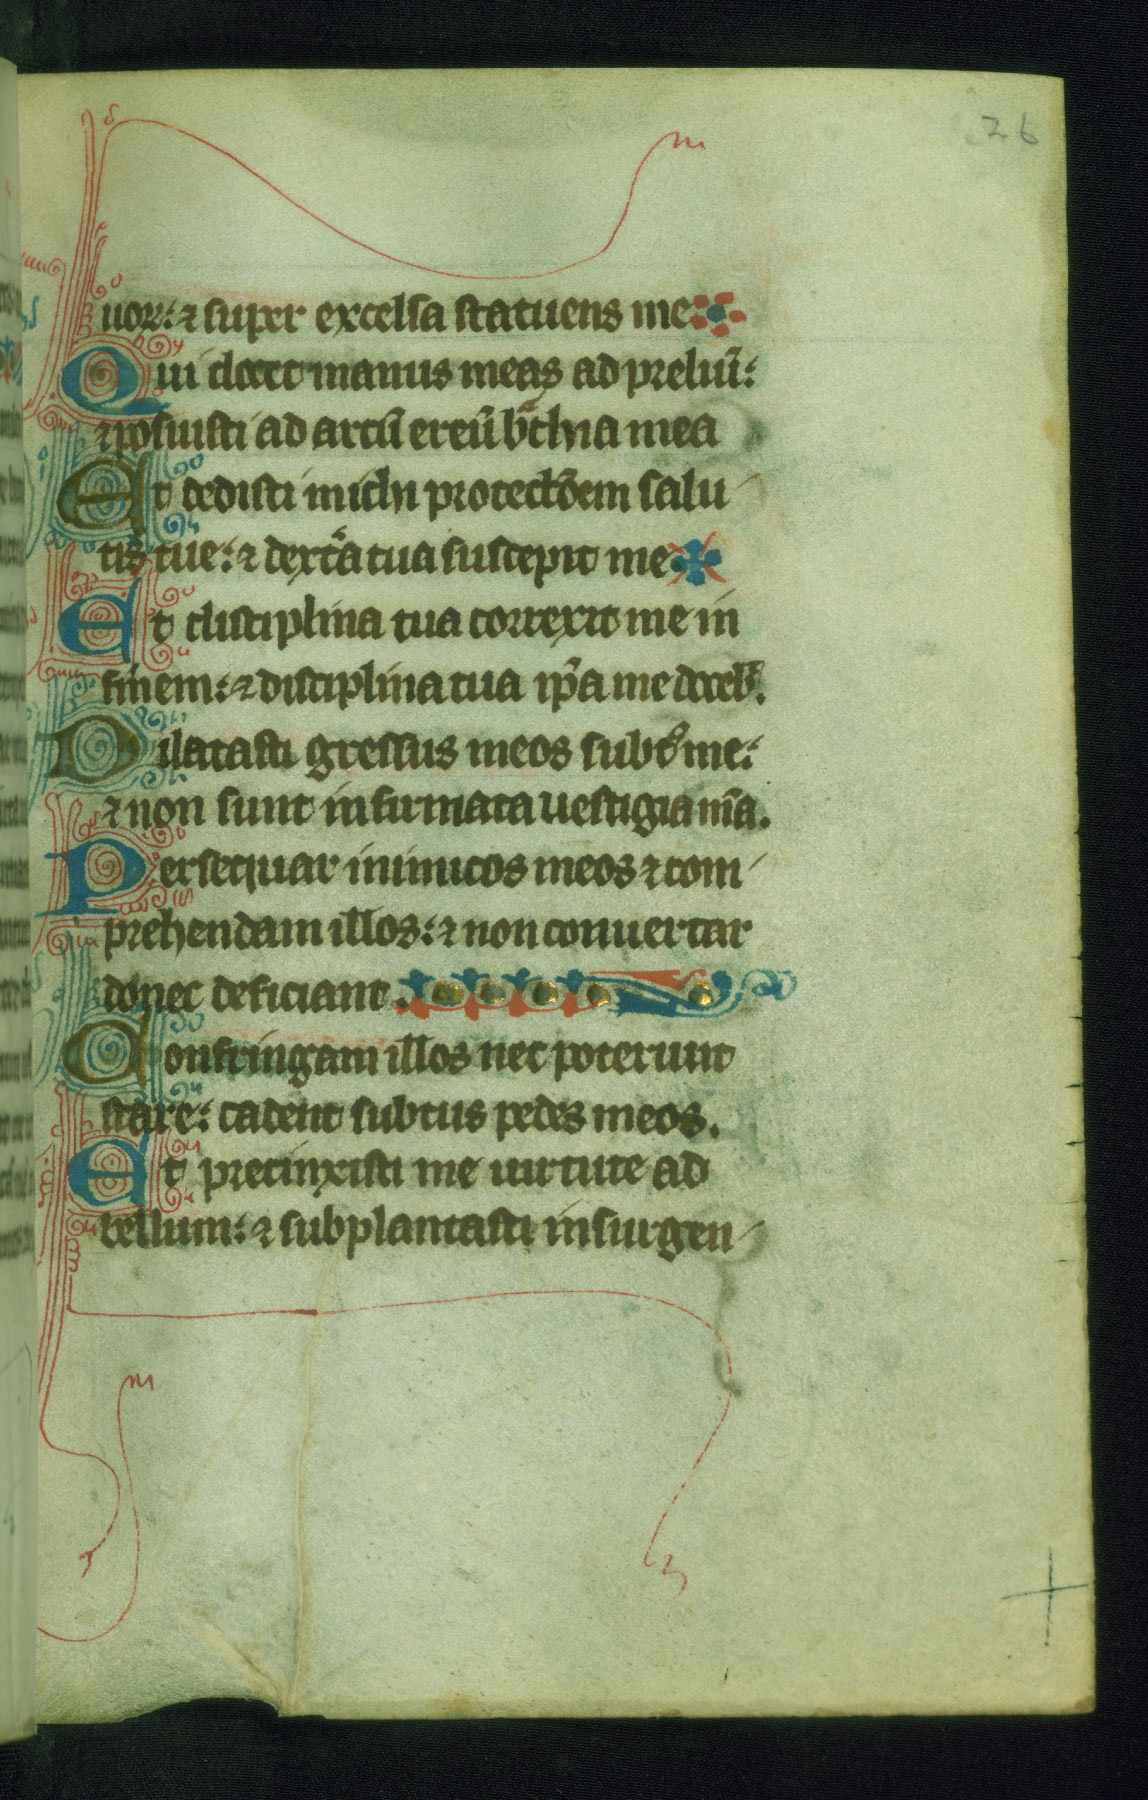 26
uor: ⁊ super excelsa statuens me:
Qui docet manus meas ad preliū:
⁊ posuisti ad arcū ereū b̄chia mea
Et dedisti michi protectōem salu
tis tue: ⁊ dext̾a tua suscepit me
Et disciplina tua correxit me in
finem: ⁊ disciplina tua ip̄a me doceb᷒.
Dilatasti gressus meos subt᷒ me:
⁊ non sunt infirmata uestigia m̄a.
Persequar inimicos meos ⁊ com
prehendam illos: ⁊ non conuertar
donec deficiant.
Confringam illos nec poterunt
stare: cadent subtus pedes meos.
Et precinxisti me uirtute ad
bellum: ⁊ subplantasti insurgen